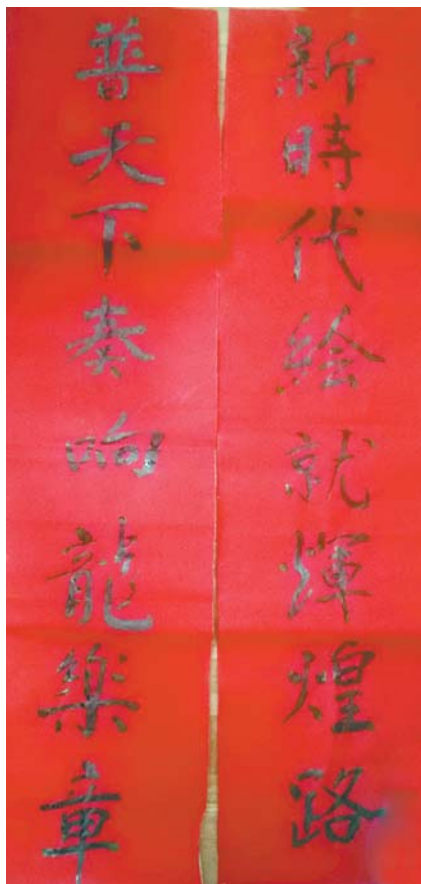 新時代絵就輝煌路
普天下奏响龍樂章